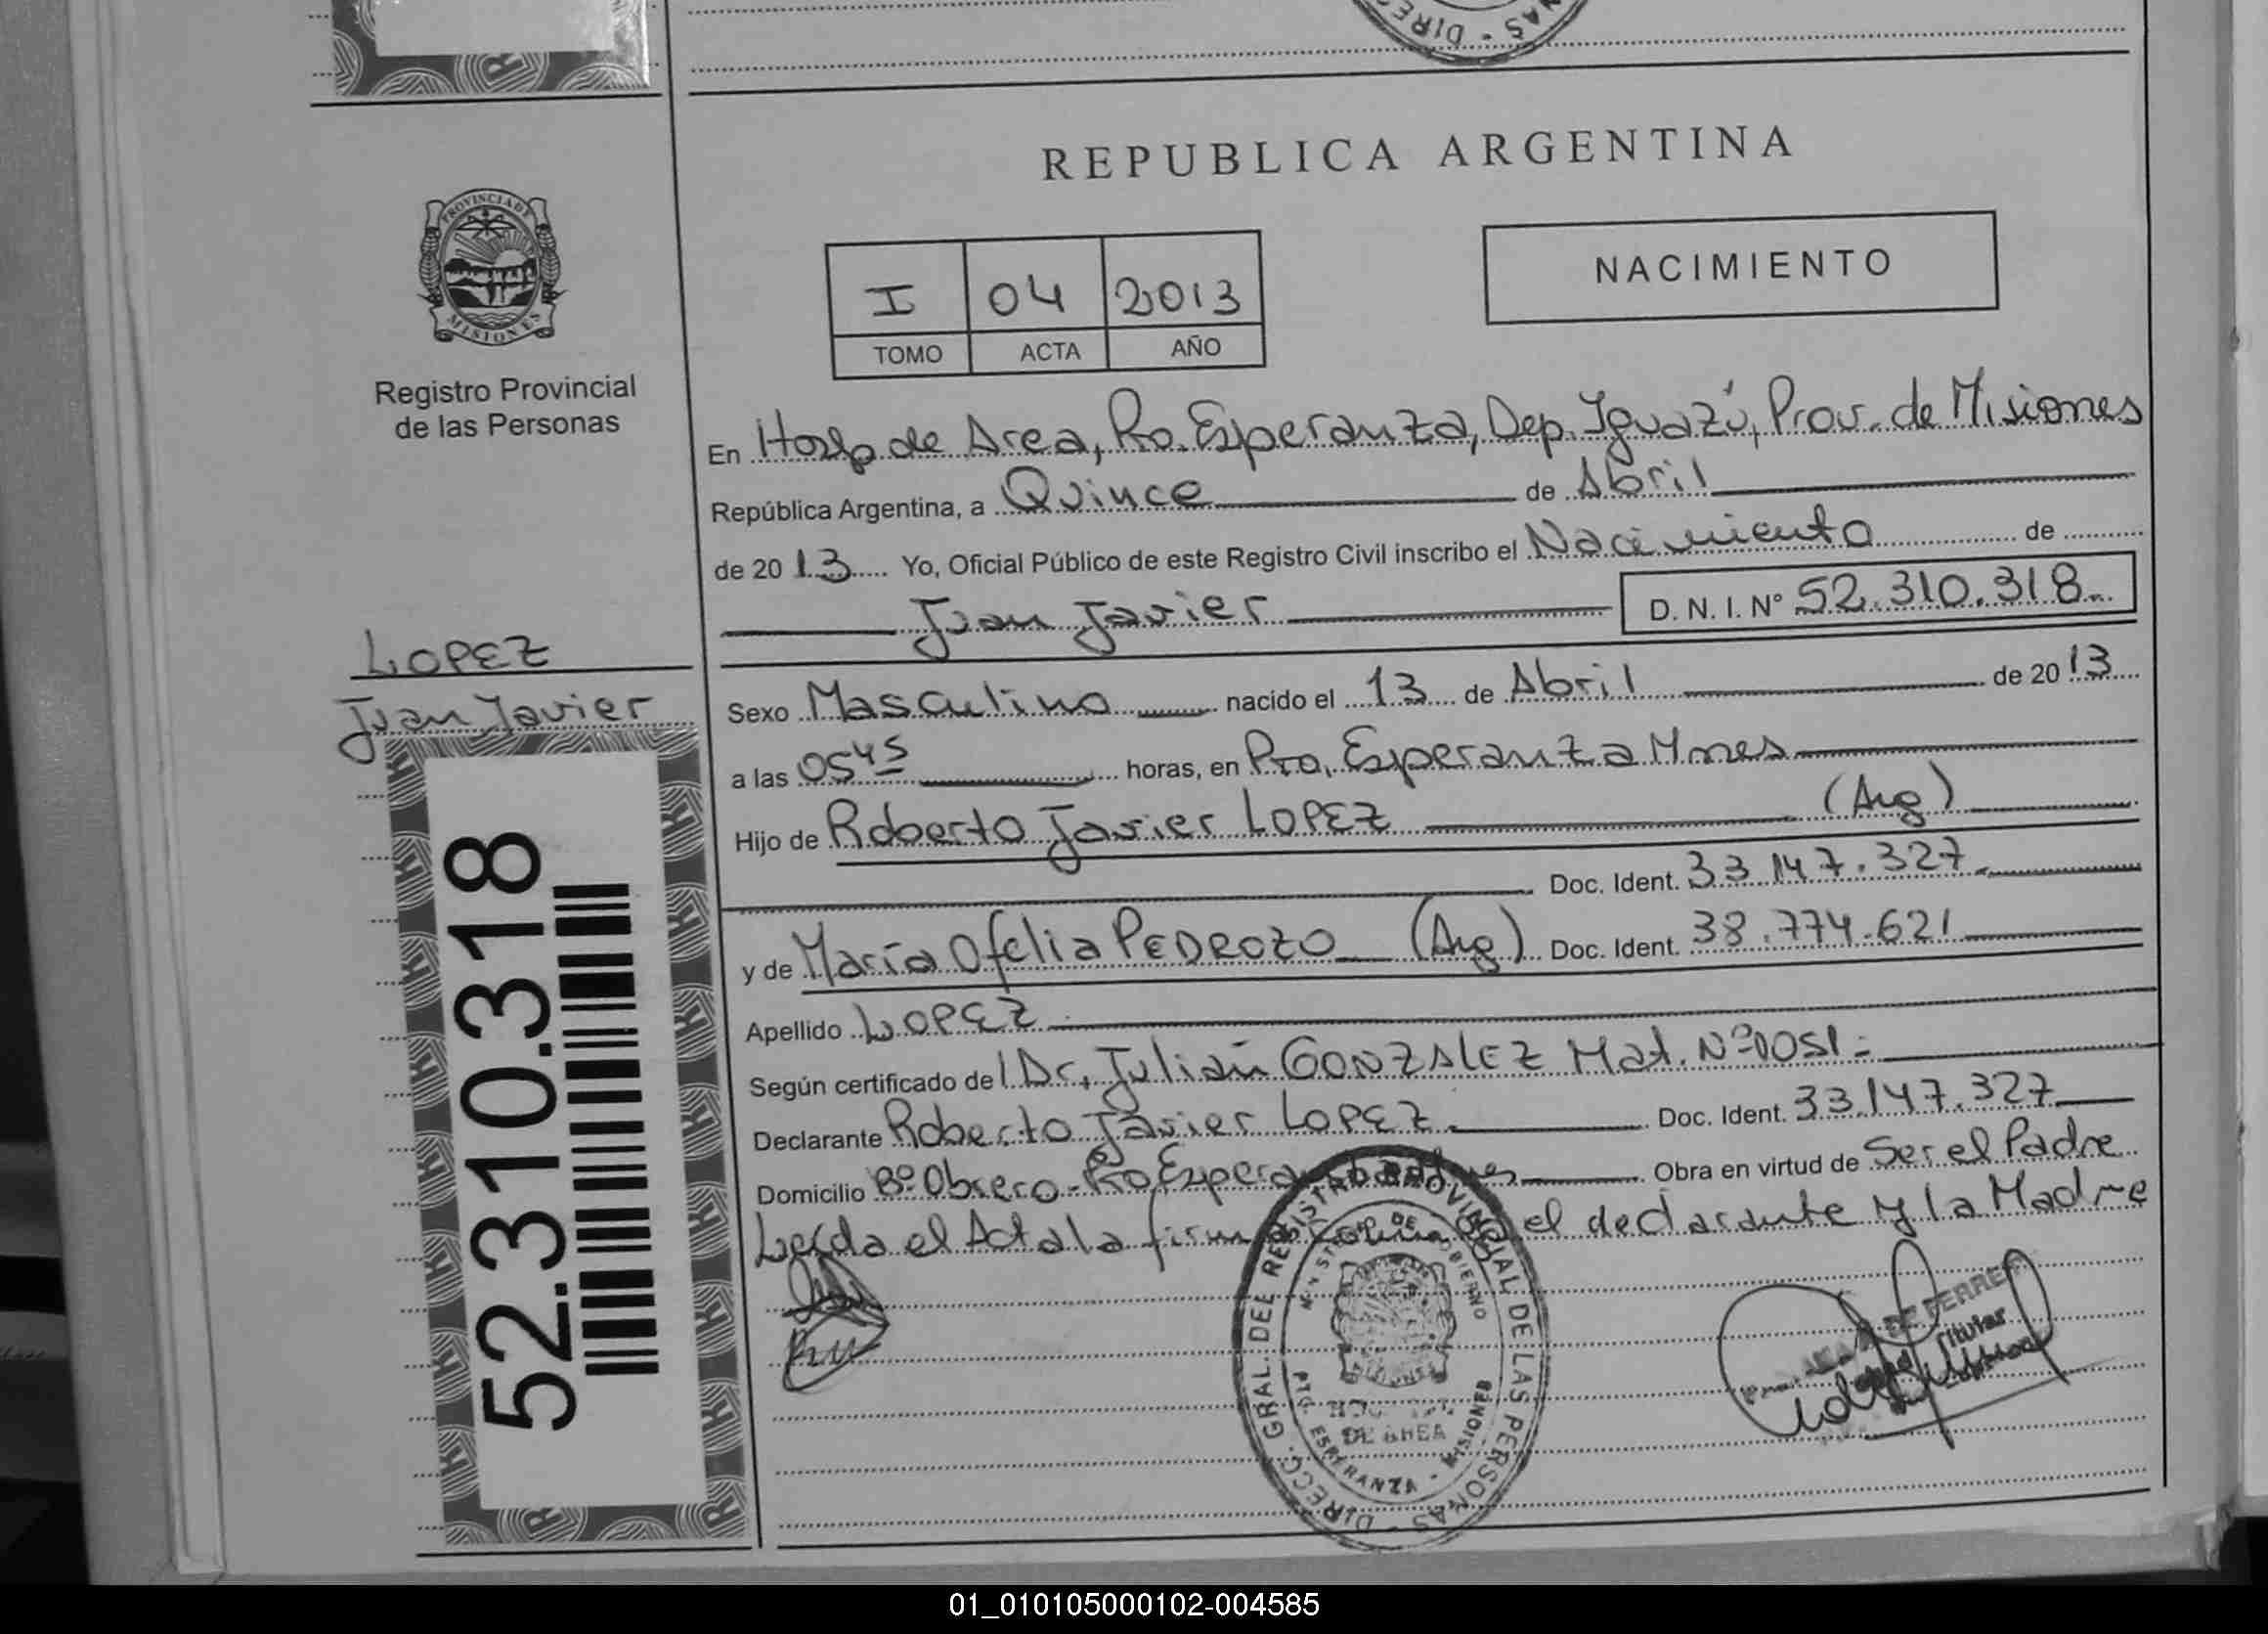 REPUBLICA ARGENTINA
PROVINCIA DE
MISIONES
Registro Provincial
de las Personas
I 04 2013
TOMO ACTA AÑO
NACIMIENTO
En Hosp de Area, Pto. Esperanza, Dep. Iguazú, Prov. de Misiones
República Argentina, a Quince de Abril
de 2013 Yo, Oficial Público de este Registro Civil inscribo el Nacimiento de
Juan Javier D. N. I. N° 52.310.318
LOPEZ
Juan Javier
52.310.318
Sexo Masculino nacido el 13 de Abril de 2013
a las 0545 horas, en Pto, Esperanza Mnes
Hijo de Roberto Javier LOPEZ (Arg)
Doc. Ident. 33.147.327
y de María Ofelia PEDROZO (Arg) Doc. Ident. 38.774.621
Apellido LOPEZ
Según certificado de Dr, Julián GONZALEZ Mat. Nº 0051
Declarante Roberto Javier LOPEZ Doc. Ident. 33.147.327
Domicilio Bº Obrero - Pto Esperanza Obra en virtud de Ser el Padre
Leída el Acta la el declarante y la Madre
DIRECC. GRAL. DEL REGISTRO PROVINCIAL DE LAS PERSONAS
MINISTERIO DE GOBIERNO
DE AREA
PTO. ESPERANZA - MISIONES
DE FERREI
Titular
01_010105000102-004585